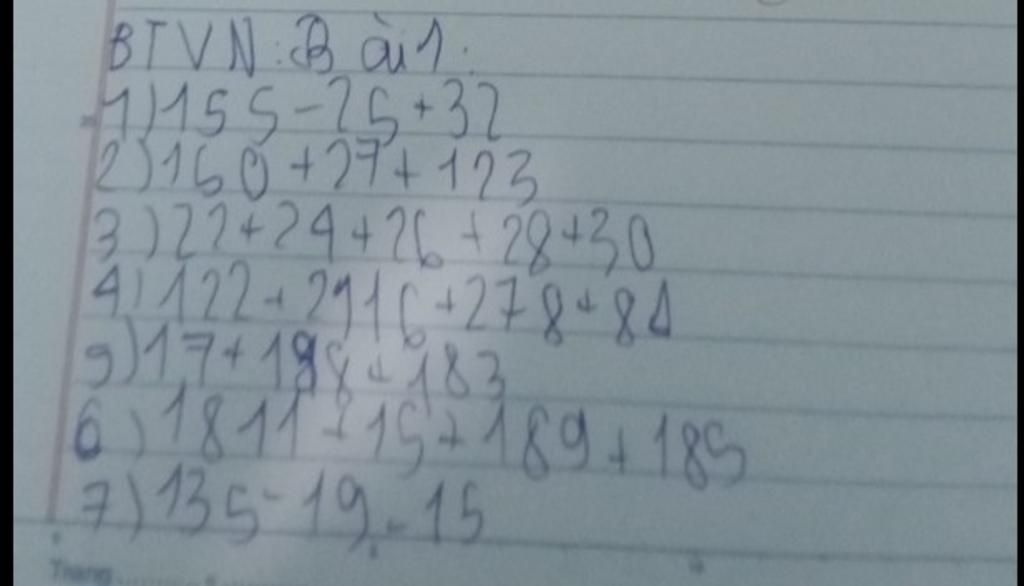 BTVN: Bài 1:
1) 155-25+32
2) 160+27+123
3) 22+24+26+28+30
4) 122+2916+278+84
5) 17+188+183
6) 1811+15+189+185
7) 135-19-15
Trang